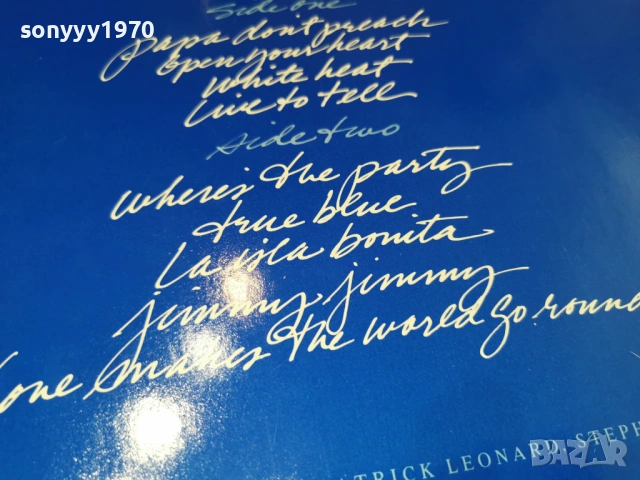 sonyyy1970
side one
papa don't preach
open your heart
white heat
live to tell
side two
where's the party
true blue
la isla bonita
jimmy jimmy
love makes the world go round
TRICK LEONARD, STEPH
BAZAR